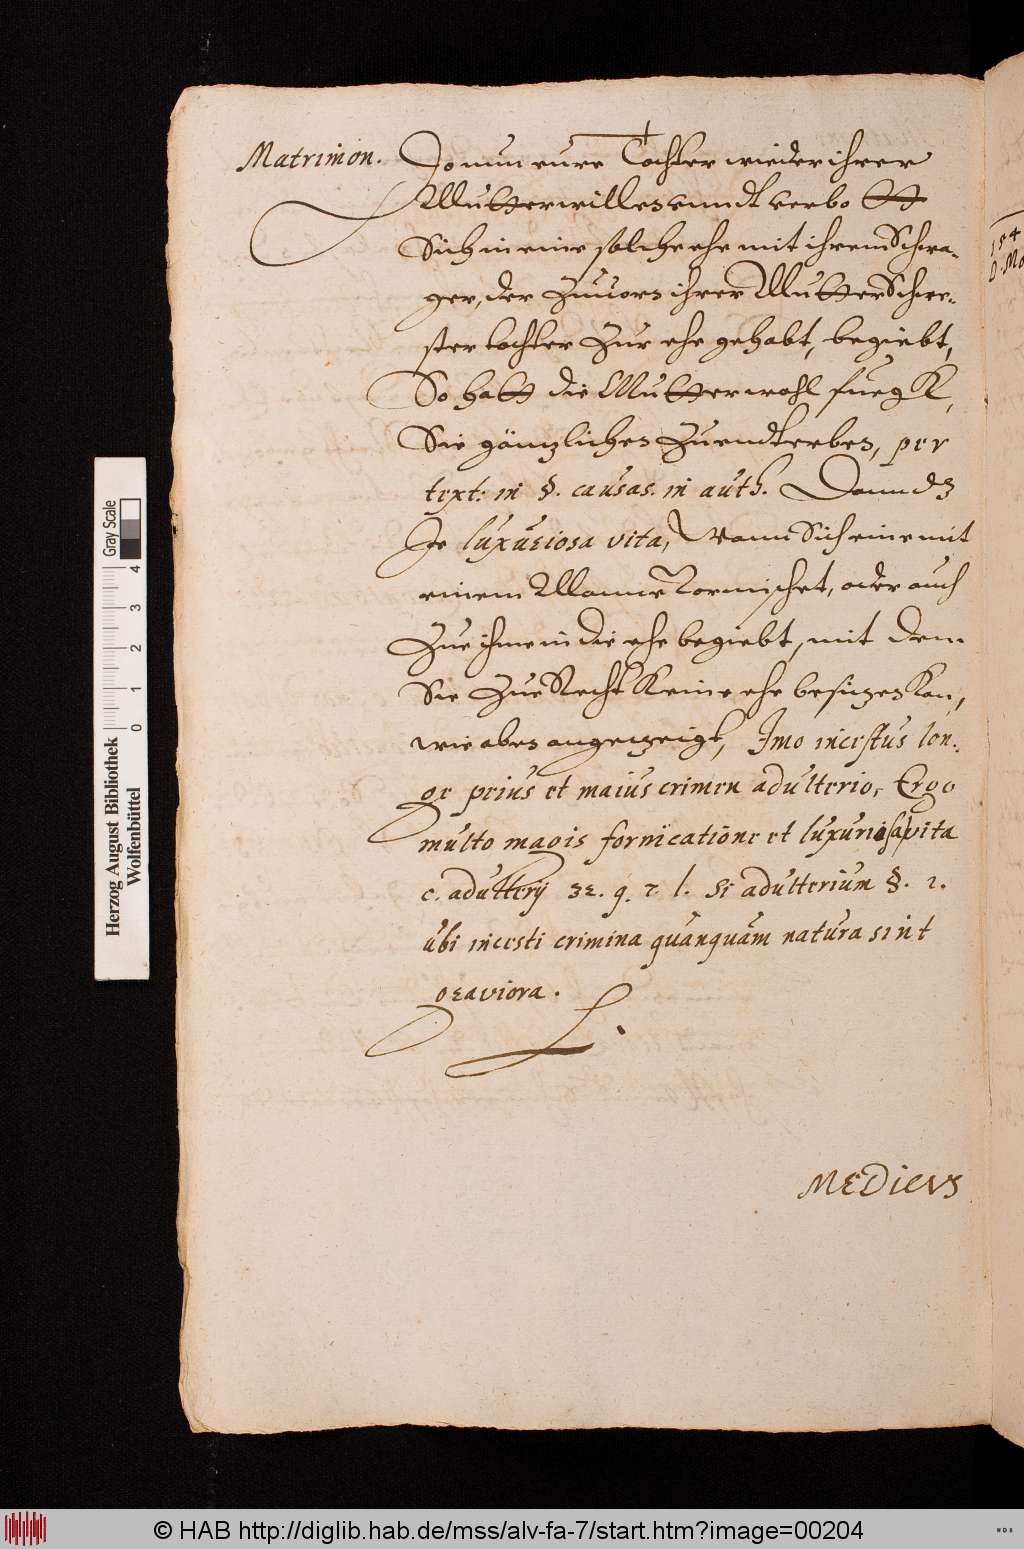 Matrimon.
So nun eure Tochter wieder ihrer
Mutter willen unndt verbott
Sich in eine solche ehe mit ihrem Schwa-
ger, der Zuuorn ihrer Mutter Schwe-
ster tochter Zur ehe gehabt, begiebt,
So hatt die Mutter wohl fueg
Sie gäntzlichen Zu endterben, per
text: in §. causas. in auth. Dann dz
Je luxuriosa vita, Wann Sich eine mit
einem Manne vormischet, oder auch
Zue ihme in die ehe begiebt, mit dem
Sie Zue Recht Keine ehe besitzen Kan,
wie oben angezeigt, Imo incestus lon-
ge prius et maius crimen adulterio, Ergo
multo magis fornicatione et luxuriosa vita
c. adulterij 32. q. 7 l. Si adulterium §. 2.
ubi incesti crimina quanquàm natura sint
graviora.
Medicus
154
D. Mo
Gray Scale
4
3
2
1
0
Herzog August Bibliothek
Wolfenbüttel
© HAB http://diglib.hab.de/mss/alv-fa-7/start.htm?image=00204